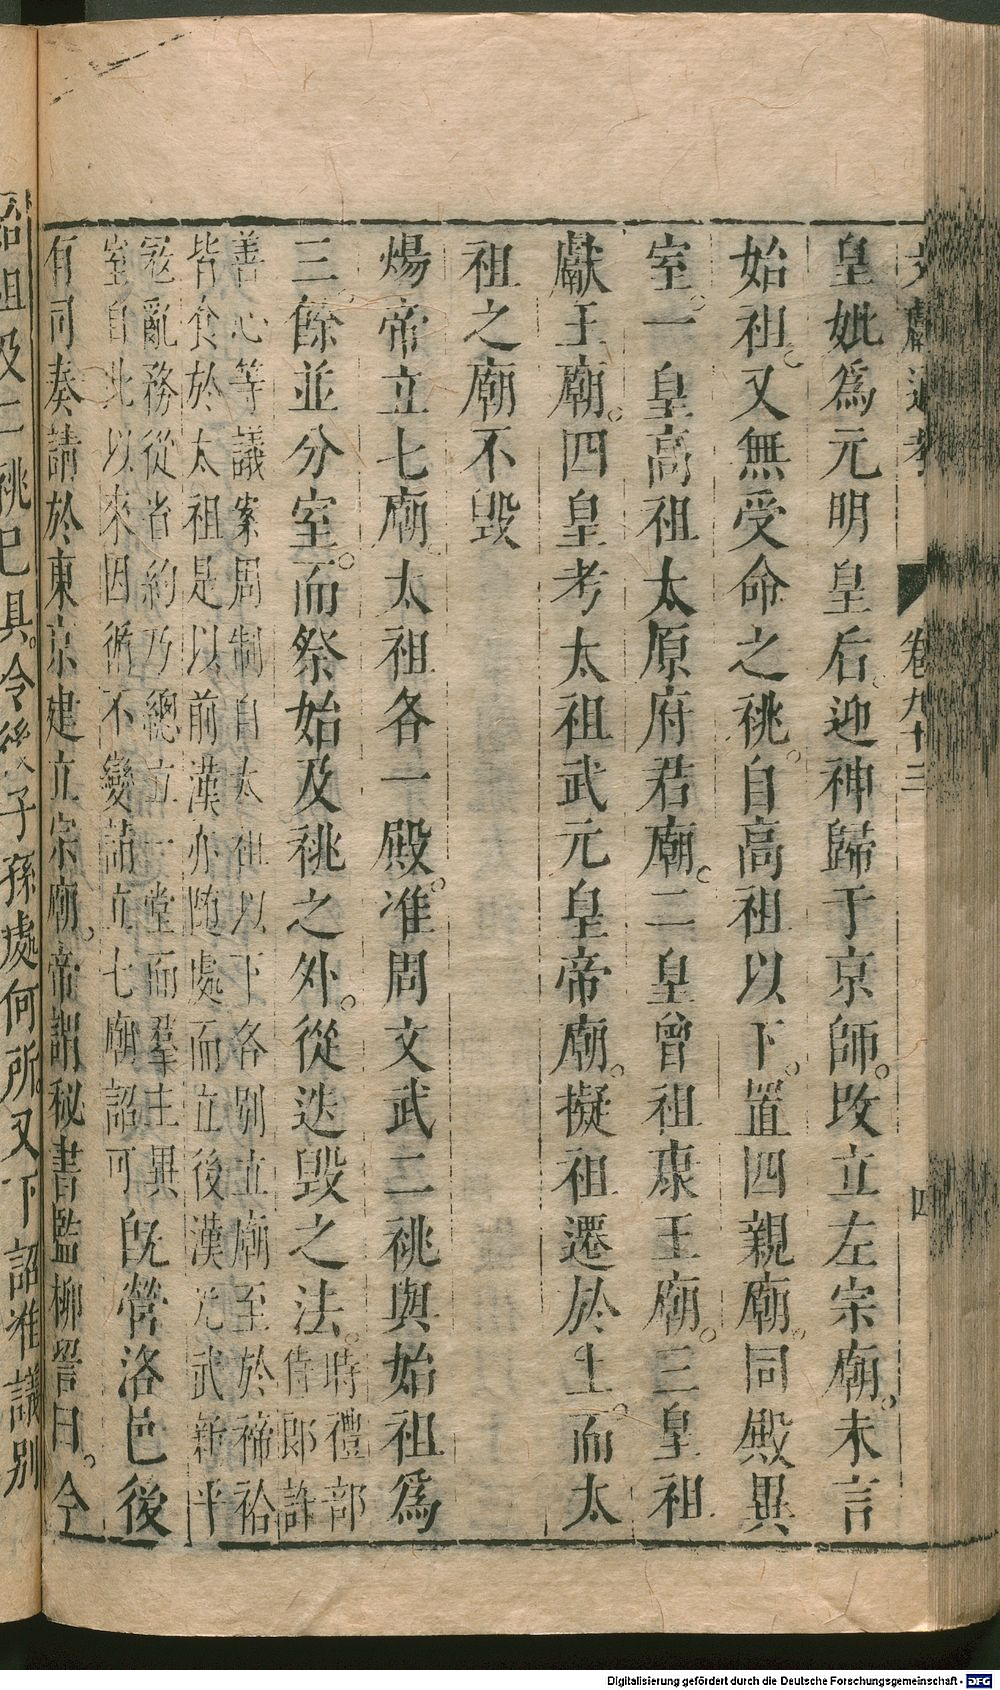 文獻通考 卷九十三 四
皇妣爲元明皇后。迎神歸于京師。改立左宗廟。未言
始祖。又無受命之祧。自高祖以下。置四親廟。同殿異
室。一皇高祖太原府君廟。二皇曾祖康王廟。三皇祖
獻王廟。四皇考太祖武元皇帝廟。擬祖遷於上。而太
祖之廟不毀
煬帝立七廟。太祖各一殿。准周文武二祧與始祖爲
三。餘並分室。而祭始及祧之外。從迭毀之法。時禮部
侍郎許
善心等議案周制自太祖以下各別立廟至於禘祫
皆食於太祖是以前漢亦隨處而立後漢光武新平
寇亂務從省約乃總立一堂而羣主異
室自此以來因循不變請立七廟詔可旣營洛邑後
有司奏請於東京建立宗廟。帝謂秘書監柳䛒曰。今
始祖及二祧已具。今後子孫處何所。又下詔准議別
Digitalisierung gefördert durch die Deutsche Forschungsgemeinschaft - DFG